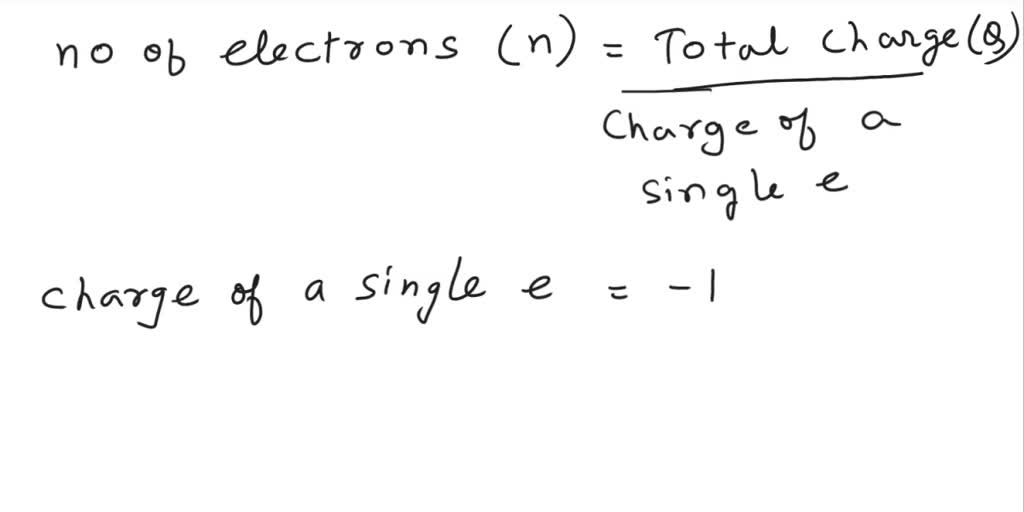 no of electrons (n) = Total charge (Q)
Charge of a
single e
charge of a single e = -1